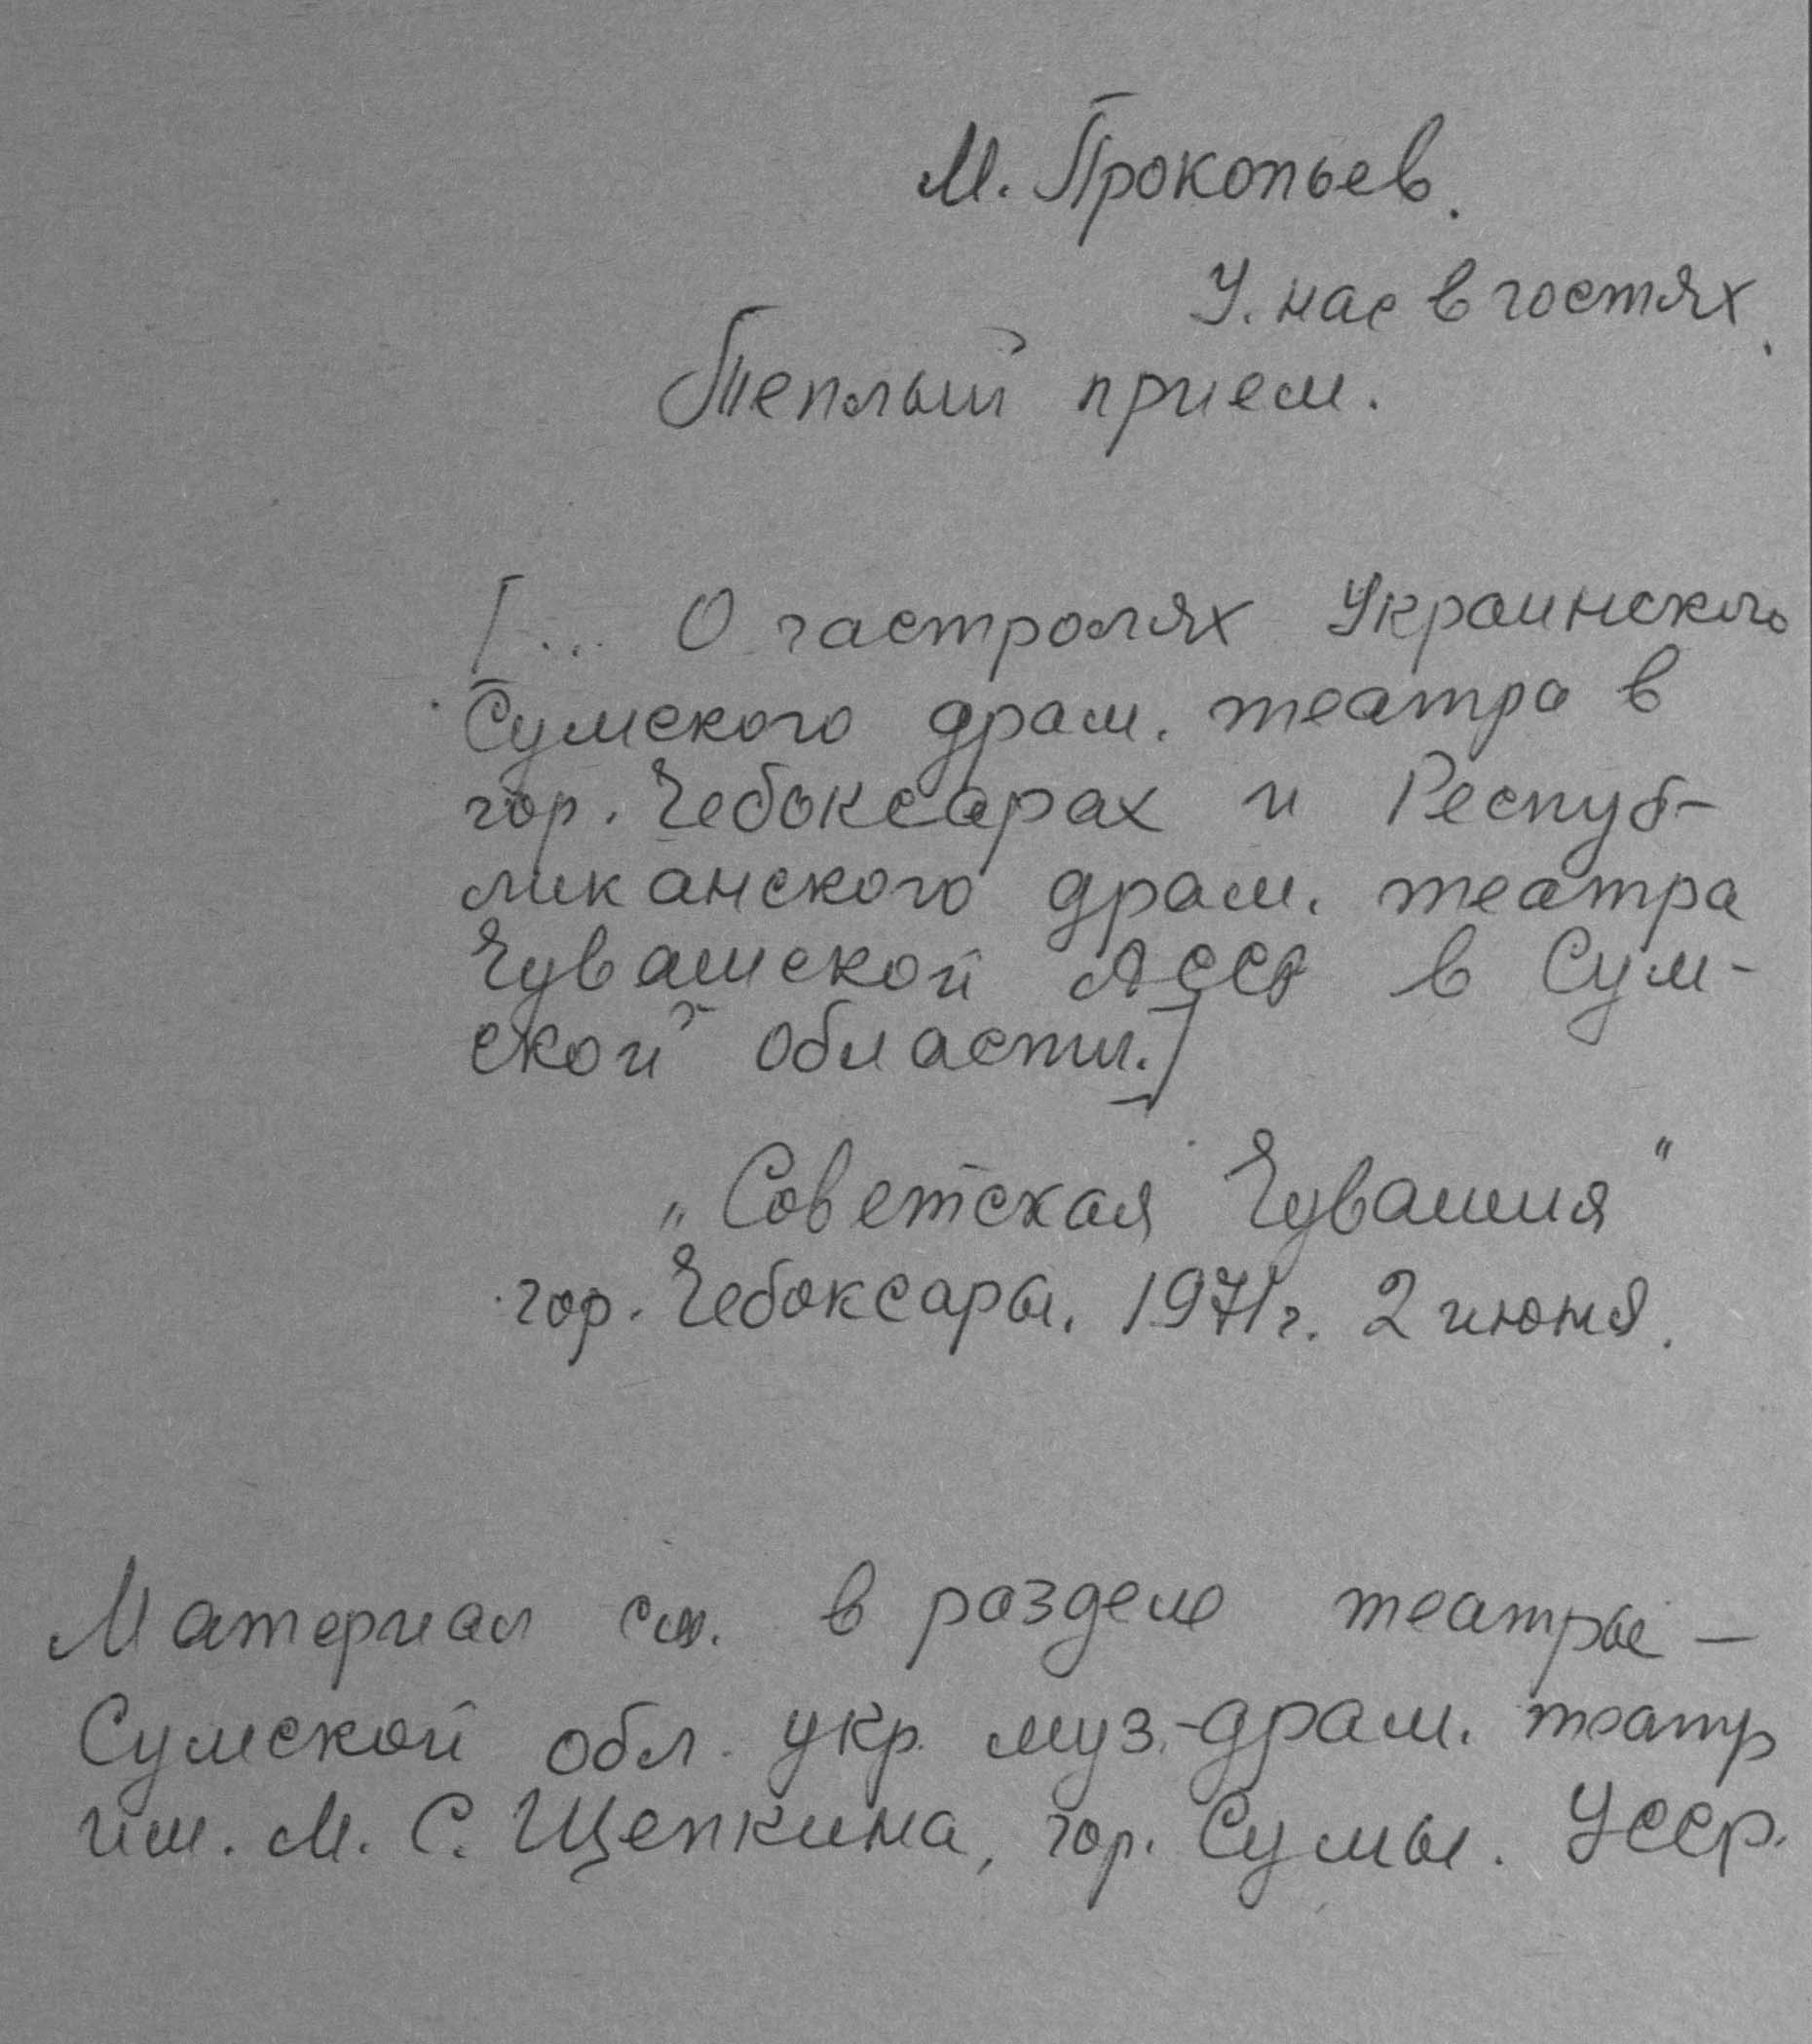 М. Прокопьев.
У. нас в гостях.
Теплый прием.
[... О гастролях Украинского
Сумского драм. театра в
гор. Чебоксарах и Респуб-
ликанского драм. театра
Чувашской АССР в Сум-
ской области.]
„Советская Чувашия"
гор. Чебоксары. 1971г. 2 июня.
Материал см. в разделе театры —
Сумской обл. укр. муз.-драм. театр
им. М. С. Щепкина, гор. Сумы. УССР.